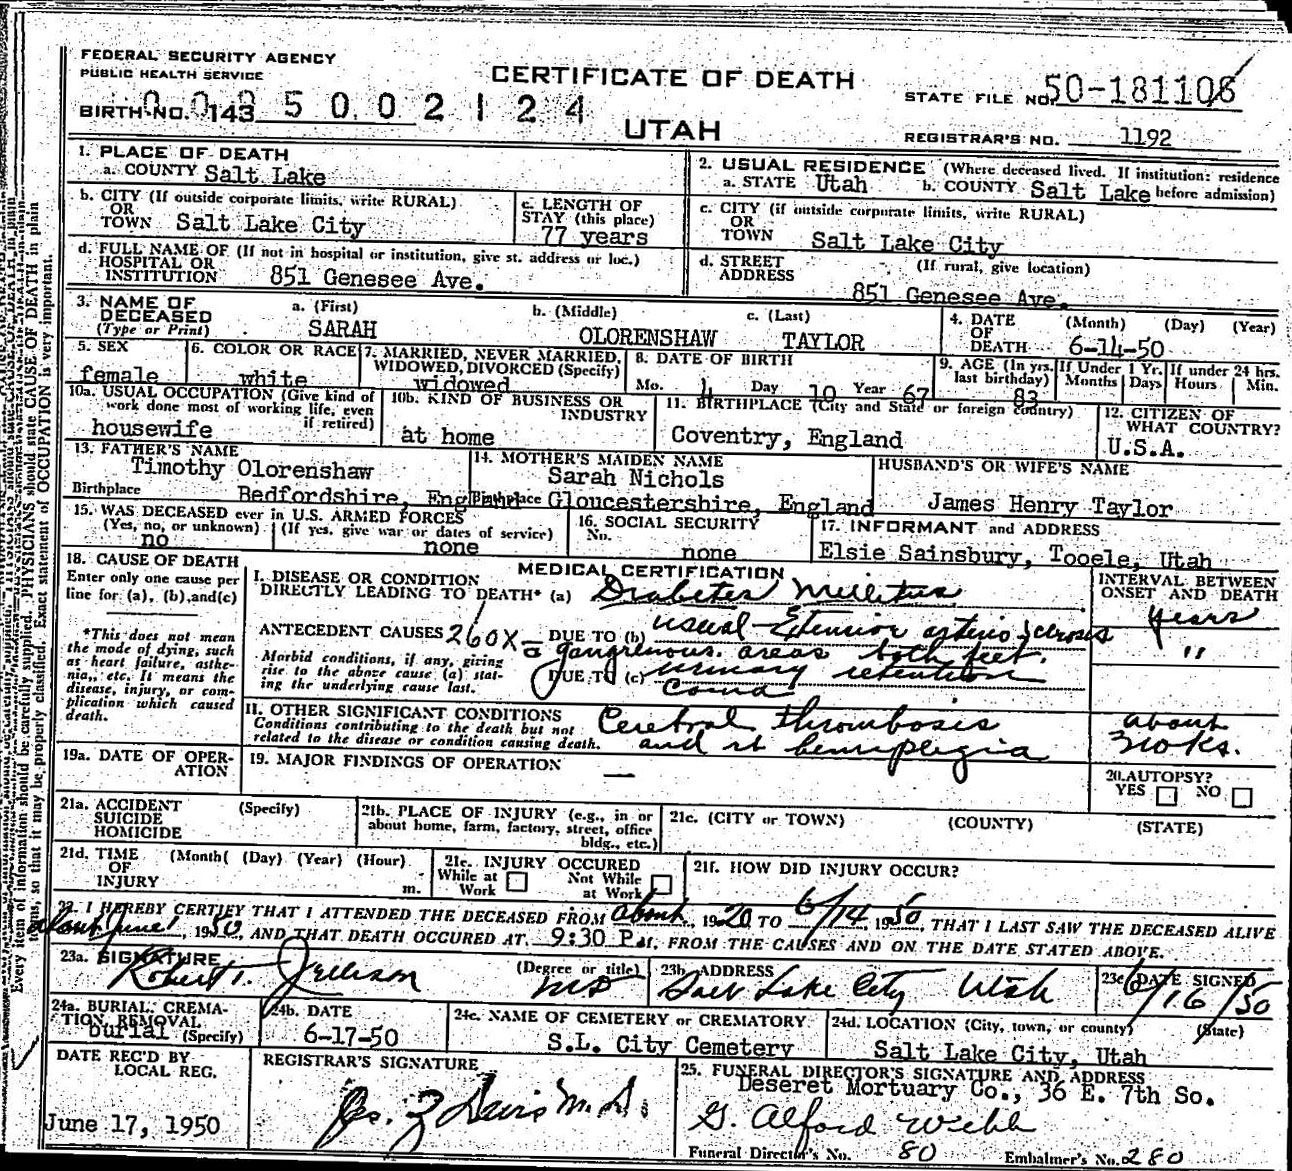 FEDERAL SECURITY AGENCY
PUBLIC HEALTH SERVICE
CERTIFICATE OF DEATH
STATE FILE NO. 50-181106
BIRTH NO. 143 5 0 0 2 1 2 4
UTAH
REGISTRAR'S NO. 1192
1. PLACE OF DEATH
a. COUNTY Salt Lake
2. USUAL RESIDENCE (Where deceased lived. If institution: residence before admission)
a. STATE Utah b. COUNTY Salt Lake
b. CITY (If outside corporate limits, write RURAL) OR TOWN Salt Lake City
c. LENGTH OF STAY (this place) 77 years
c. CITY (if outside corporate limits, write RURAL) OR TOWN Salt Lake City
d. FULL NAME OF (If not in hospital or institution, give st. address or loc.) HOSPITAL OR INSTITUTION 851 Genesee Ave.
d. STREET ADDRESS (If rural, give location) 851 Genesee Ave.
3. NAME OF DECEASED (Type or Print)
a. (First) SARAH
b. (Middle) OLORENSHAW
c. (Last) TAYLOR
4. DATE OF DEATH (Month) (Day) (Year) 6-14-50
5. SEX female
6. COLOR OR RACE white
7. MARRIED, NEVER MARRIED, WIDOWED, DIVORCED (Specify) widowed
8. DATE OF BIRTH Mo. 4 Day 10 Year 67
9. AGE (In yrs. last birthday) 83
If Under 1 Yr. Months Days
If under 24 hrs. Hours Min.
10a. USUAL OCCUPATION (Give kind of work done most of working life, even if retired) housewife
10b. KIND OF BUSINESS OR INDUSTRY at home
11. BIRTHPLACE (City and State or foreign country) Coventry, England
12. CITIZEN OF WHAT COUNTRY? U.S.A.
13. FATHER'S NAME Timothy Olorenshaw
Birthplace Bedfordshire, England
14. MOTHER'S MAIDEN NAME Sarah Nichols
Birthplace Gloucestershire, England
HUSBAND'S OR WIFE'S NAME James Henry Taylor
15. WAS DECEASED ever in U.S. ARMED FORCES (Yes, no, or unknown) no
(If yes, give war or dates of service) none
16. SOCIAL SECURITY No. none
17. INFORMANT and ADDRESS Elsie Sainsbury, Tooele, Utah
18. CAUSE OF DEATH
Enter only one cause per line for (a), (b), and (c)
*This does not mean the mode of dying, such as heart failure, asthenia, etc. It means the disease, injury, or complication which caused death.
MEDICAL CERTIFICATION
INTERVAL BETWEEN ONSET AND DEATH
I. DISEASE OR CONDITION DIRECTLY LEADING TO DEATH* (a) Diabetes Mellitus
years
ANTECEDENT CAUSES 260X
Morbid conditions, if any, giving rise to the above cause (a) stating the underlying cause last.
DUE TO (b) usual Extensive arterio sclerosis
"
gangrenous areas both feet.
DUE TO (c) urinary retention
coma
II. OTHER SIGNIFICANT CONDITIONS
Conditions contributing to the death but not related to the disease or condition causing death.
Cerebral thrombosis
and rt hemiplegia
about
19a. DATE OF OPERATION
19. MAJOR FINDINGS OF OPERATION —
20. AUTOPSY?
YES NO
21a. ACCIDENT SUICIDE HOMICIDE (Specify)
21b. PLACE OF INJURY (e.g., in or about home, farm, factory, street, office bldg., etc.)
21c. (CITY or TOWN) (COUNTY) (STATE)
21d. TIME OF INJURY (Month( (Day) (Year) (Hour) m.
21e. INJURY OCCURED While at Work Not While at Work
21f. HOW DID INJURY OCCUR?
22. I HEREBY CERTIFY THAT I ATTENDED THE DECEASED FROM about, 1920 TO 6/14 1950, THAT I LAST SAW THE DECEASED ALIVE
about June 1, 1950, AND THAT DEATH OCCURED AT 9:30 P.M, FROM THE CAUSES AND ON THE DATE STATED ABOVE.
23a. SIGNATURE Robert T. (Degree or title) MD
23b. ADDRESS Salt Lake City Utah
23c. DATE SIGNED 6/16/50
24a. BURIAL, CREMATION, REMOVAL (Specify) burial
24b. DATE 6-17-50
24c. NAME OF CEMETERY or CREMATORY S.L. City Cemetery
24d. LOCATION (City, town, or county) (State) Salt Lake City, Utah
DATE REC'D BY LOCAL REG. June 17, 1950
REGISTRAR'S SIGNATURE Davis M.D.
25. FUNERAL DIRECTOR'S SIGNATURE AND ADDRESS
Deseret Mortuary Co., 36 E. 7th So.
G. Alford Webb
Funeral Director's No. 80 Embalmer's No. 280
Every item of information should be carefully supplied. PHYSICIANS should state CAUSE OF DEATH in plain
terms, so that it may be properly classified. Exact statement of OCCUPATION is very important.